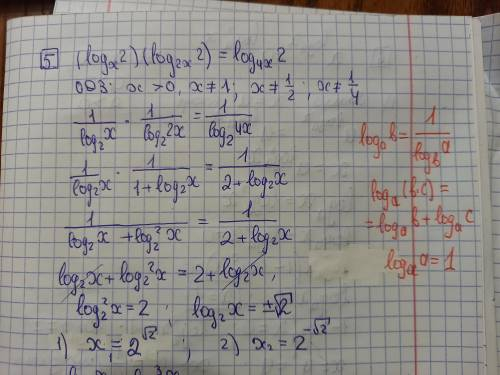 5 (logₓ2)(log₂ₓ2) = log₄ₓ2
ОДЗ: x > 0, x ≠ 1; x ≠ 1/2; x ≠ 1/4
1/log₂x · 1/log₂2x = 1/log₂4x
1/log₂x · 1/(1+log₂x) = 1/(2+log₂x)
1/(log₂x + log₂²x) = 1/(2+log₂x)
log₂x + log₂²x = 2 + log₂x,
log₂²x = 2; log₂x = ±√2
1) x₁ = 2^√2; 2) x₂ = 2^-√2
logₐb = 1/log_b a
logₐ(b·c) =
= logₐb + logₐc
logₐa = 1